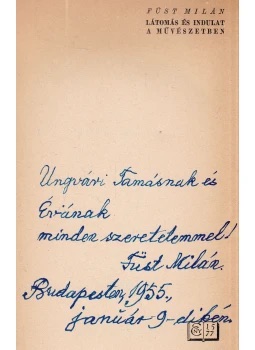 FÜST MILÁN
LÁTOMÁS ÉS INDULAT
A MŰVÉSZETBEN
Ungvári Tamásnak és
Évának
minden szeretetemmel!
Füst Milán.
Budapesten, 1955.,
január 9-dikén.
15
77